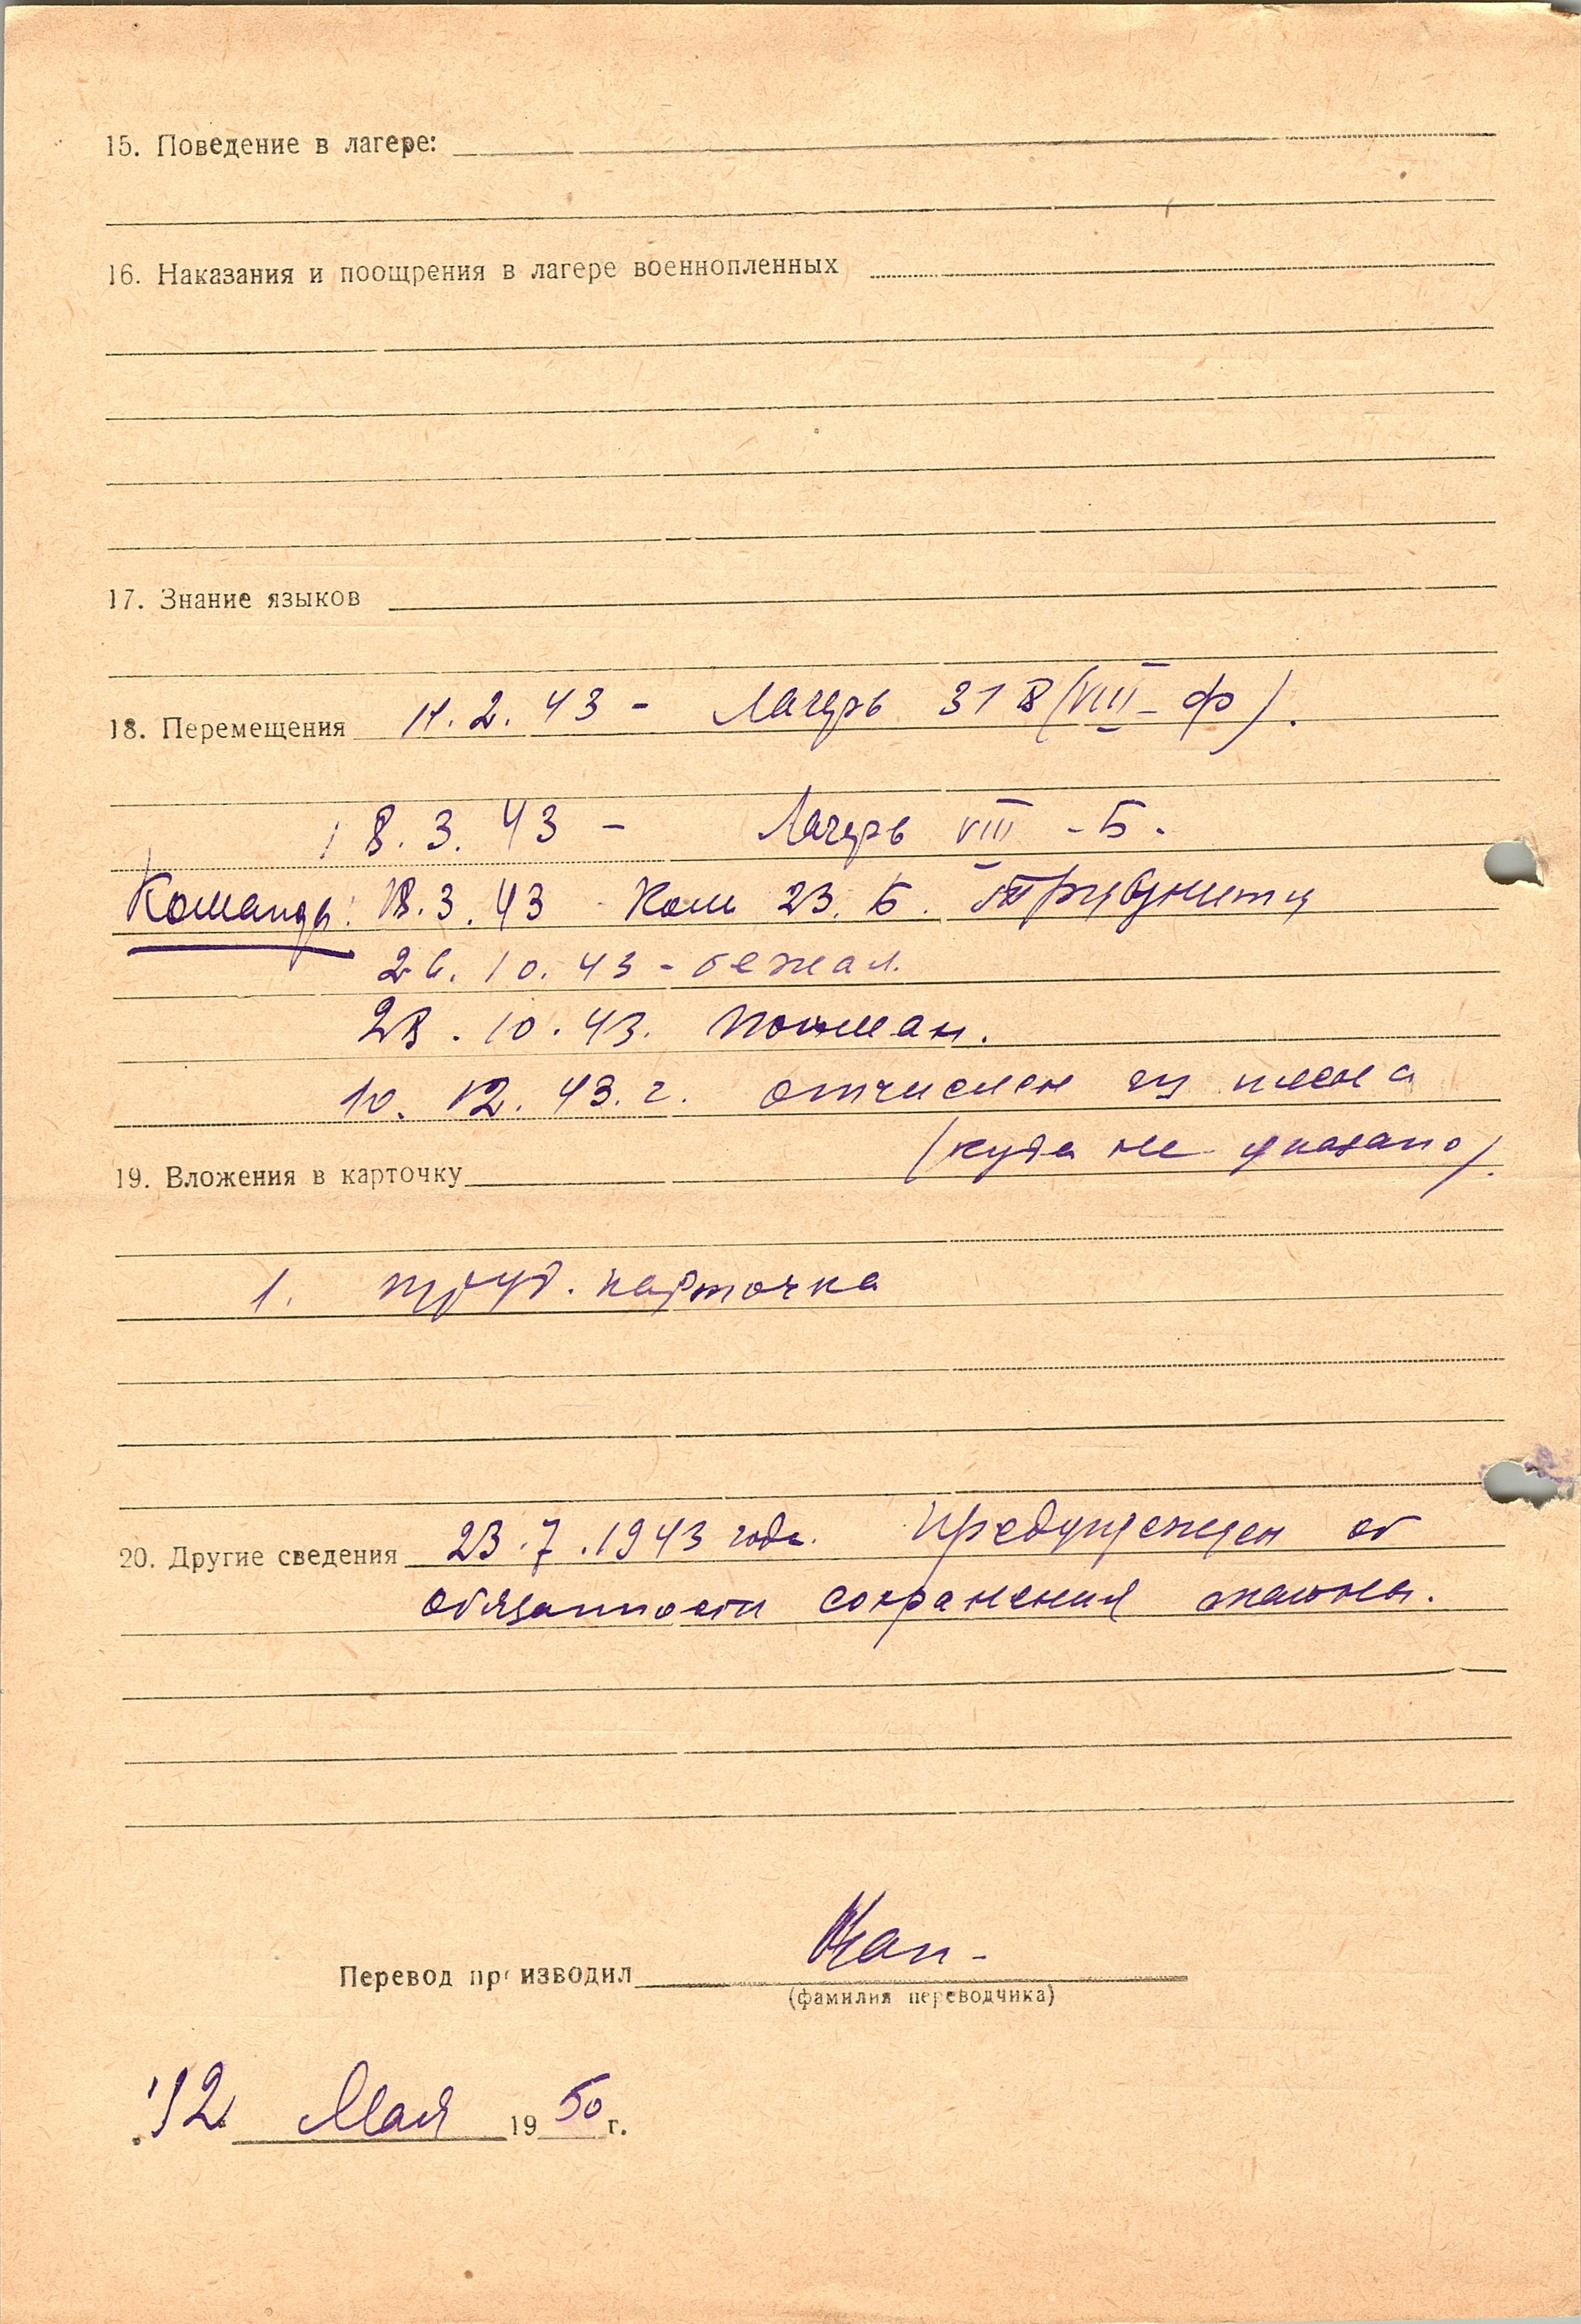 15. Поведение в лагере:
16. Наказания и поощрения в лагере военнопленных
17. Знание языков
18. Перемещения 11.2.43 - Лагерь 318 (VIII-Ф).
18.3.43 - Лагерь VIII-Б.
Команды: 18.3.43 Ком 23. Б.
26.10.43 - бежал.
28.10.43. пойман.
10.12.43.г. отчислен из плена
(куда не указано).
19. Вложения в карточку
1. труд. карточка
20. Другие сведения 23.7.1943 года. Предупрежден об
обязанности сохранения тайны.
Перевод производил
(фамилия переводчика)
"12 Мая 1950 г.